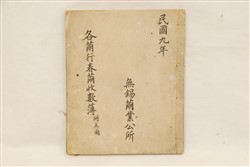 民國九年
無錫繭業公所
各繭行春繭收數簿